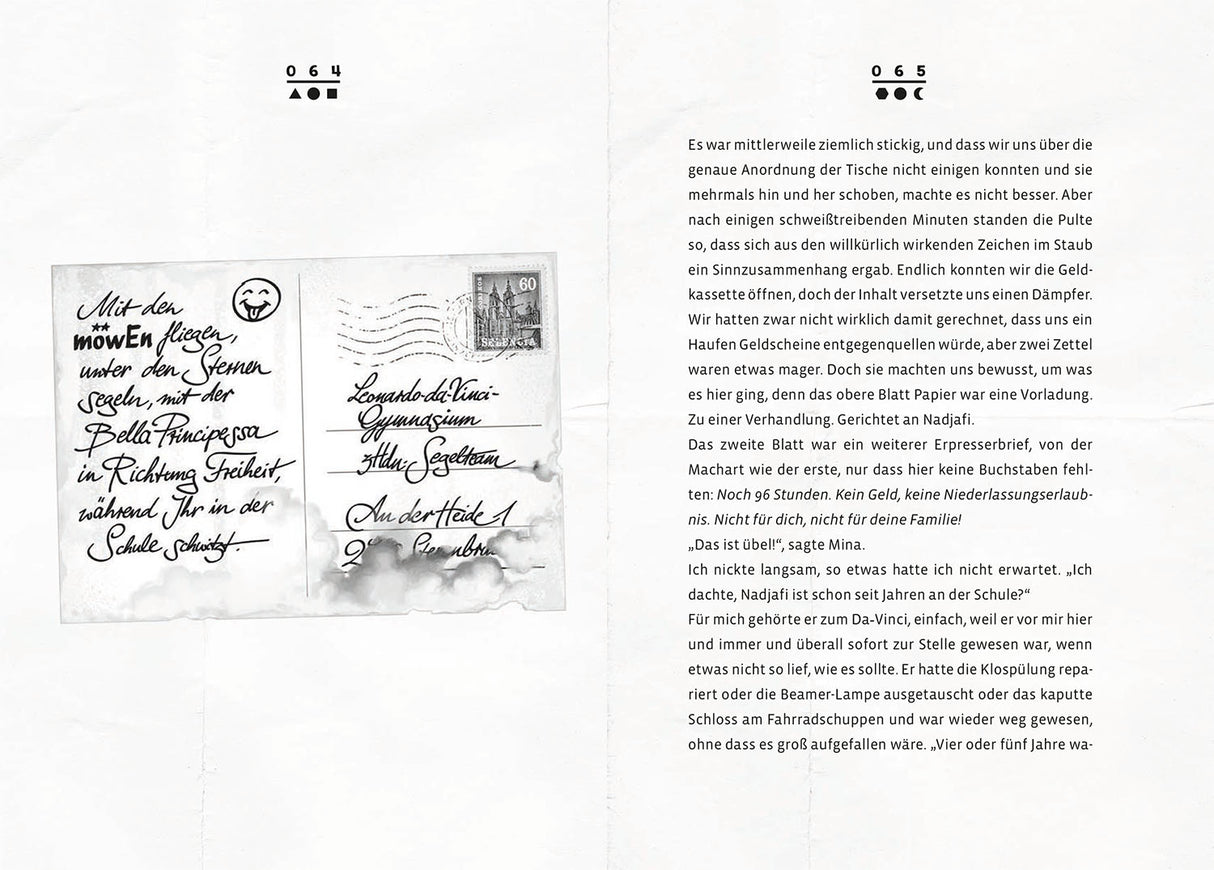 064
Mit den
möwEn fliegen,
unter den Sternen
segeln, mit der
Bella Principessa
in Richtung Freiheit,
während Ihr in der
Schule schwitzt.
60
Leonardo-da-Vinci-
Gymnasium
z.Hdn. Segelteam
An der Heide 1
065
Es war mittlerweile ziemlich stickig, und dass wir uns über die
genaue Anordnung der Tische nicht einigen konnten und sie
mehrmals hin und her schoben, machte es nicht besser. Aber
nach einigen schweißtreibenden Minuten standen die Pulte
so, dass sich aus den willkürlich wirkenden Zeichen im Staub
ein Sinnzusammenhang ergab. Endlich konnten wir die Geld-
kassette öffnen, doch der Inhalt versetzte uns einen Dämpfer.
Wir hatten zwar nicht wirklich damit gerechnet, dass uns ein
Haufen Geldscheine entgegenquellen würde, aber zwei Zettel
waren etwas mager. Doch sie machten uns bewusst, um was
es hier ging, denn das obere Blatt Papier war eine Vorladung.
Zu einer Verhandlung. Gerichtet an Nadjafi.
Das zweite Blatt war ein weiterer Erpresserbrief, von der
Machart wie der erste, nur dass hier keine Buchstaben fehl-
ten: Noch 96 Stunden. Kein Geld, keine Niederlassungserlaub-
nis. Nicht für dich, nicht für deine Familie!
„Das ist übel!“, sagte Mina.
Ich nickte langsam, so etwas hatte ich nicht erwartet. „Ich
dachte, Nadjafi ist schon seit Jahren an der Schule?“
Für mich gehörte er zum Da-Vinci, einfach, weil er vor mir hier
und immer und überall sofort zur Stelle gewesen war, wenn
etwas nicht so lief, wie es sollte. Er hatte die Klospülung repa-
riert oder die Beamer-Lampe ausgetauscht oder das kaputte
Schloss am Fahrradschuppen und war wieder weg gewesen,
ohne dass es groß aufgefallen wäre. „Vier oder fünf Jahre wa-